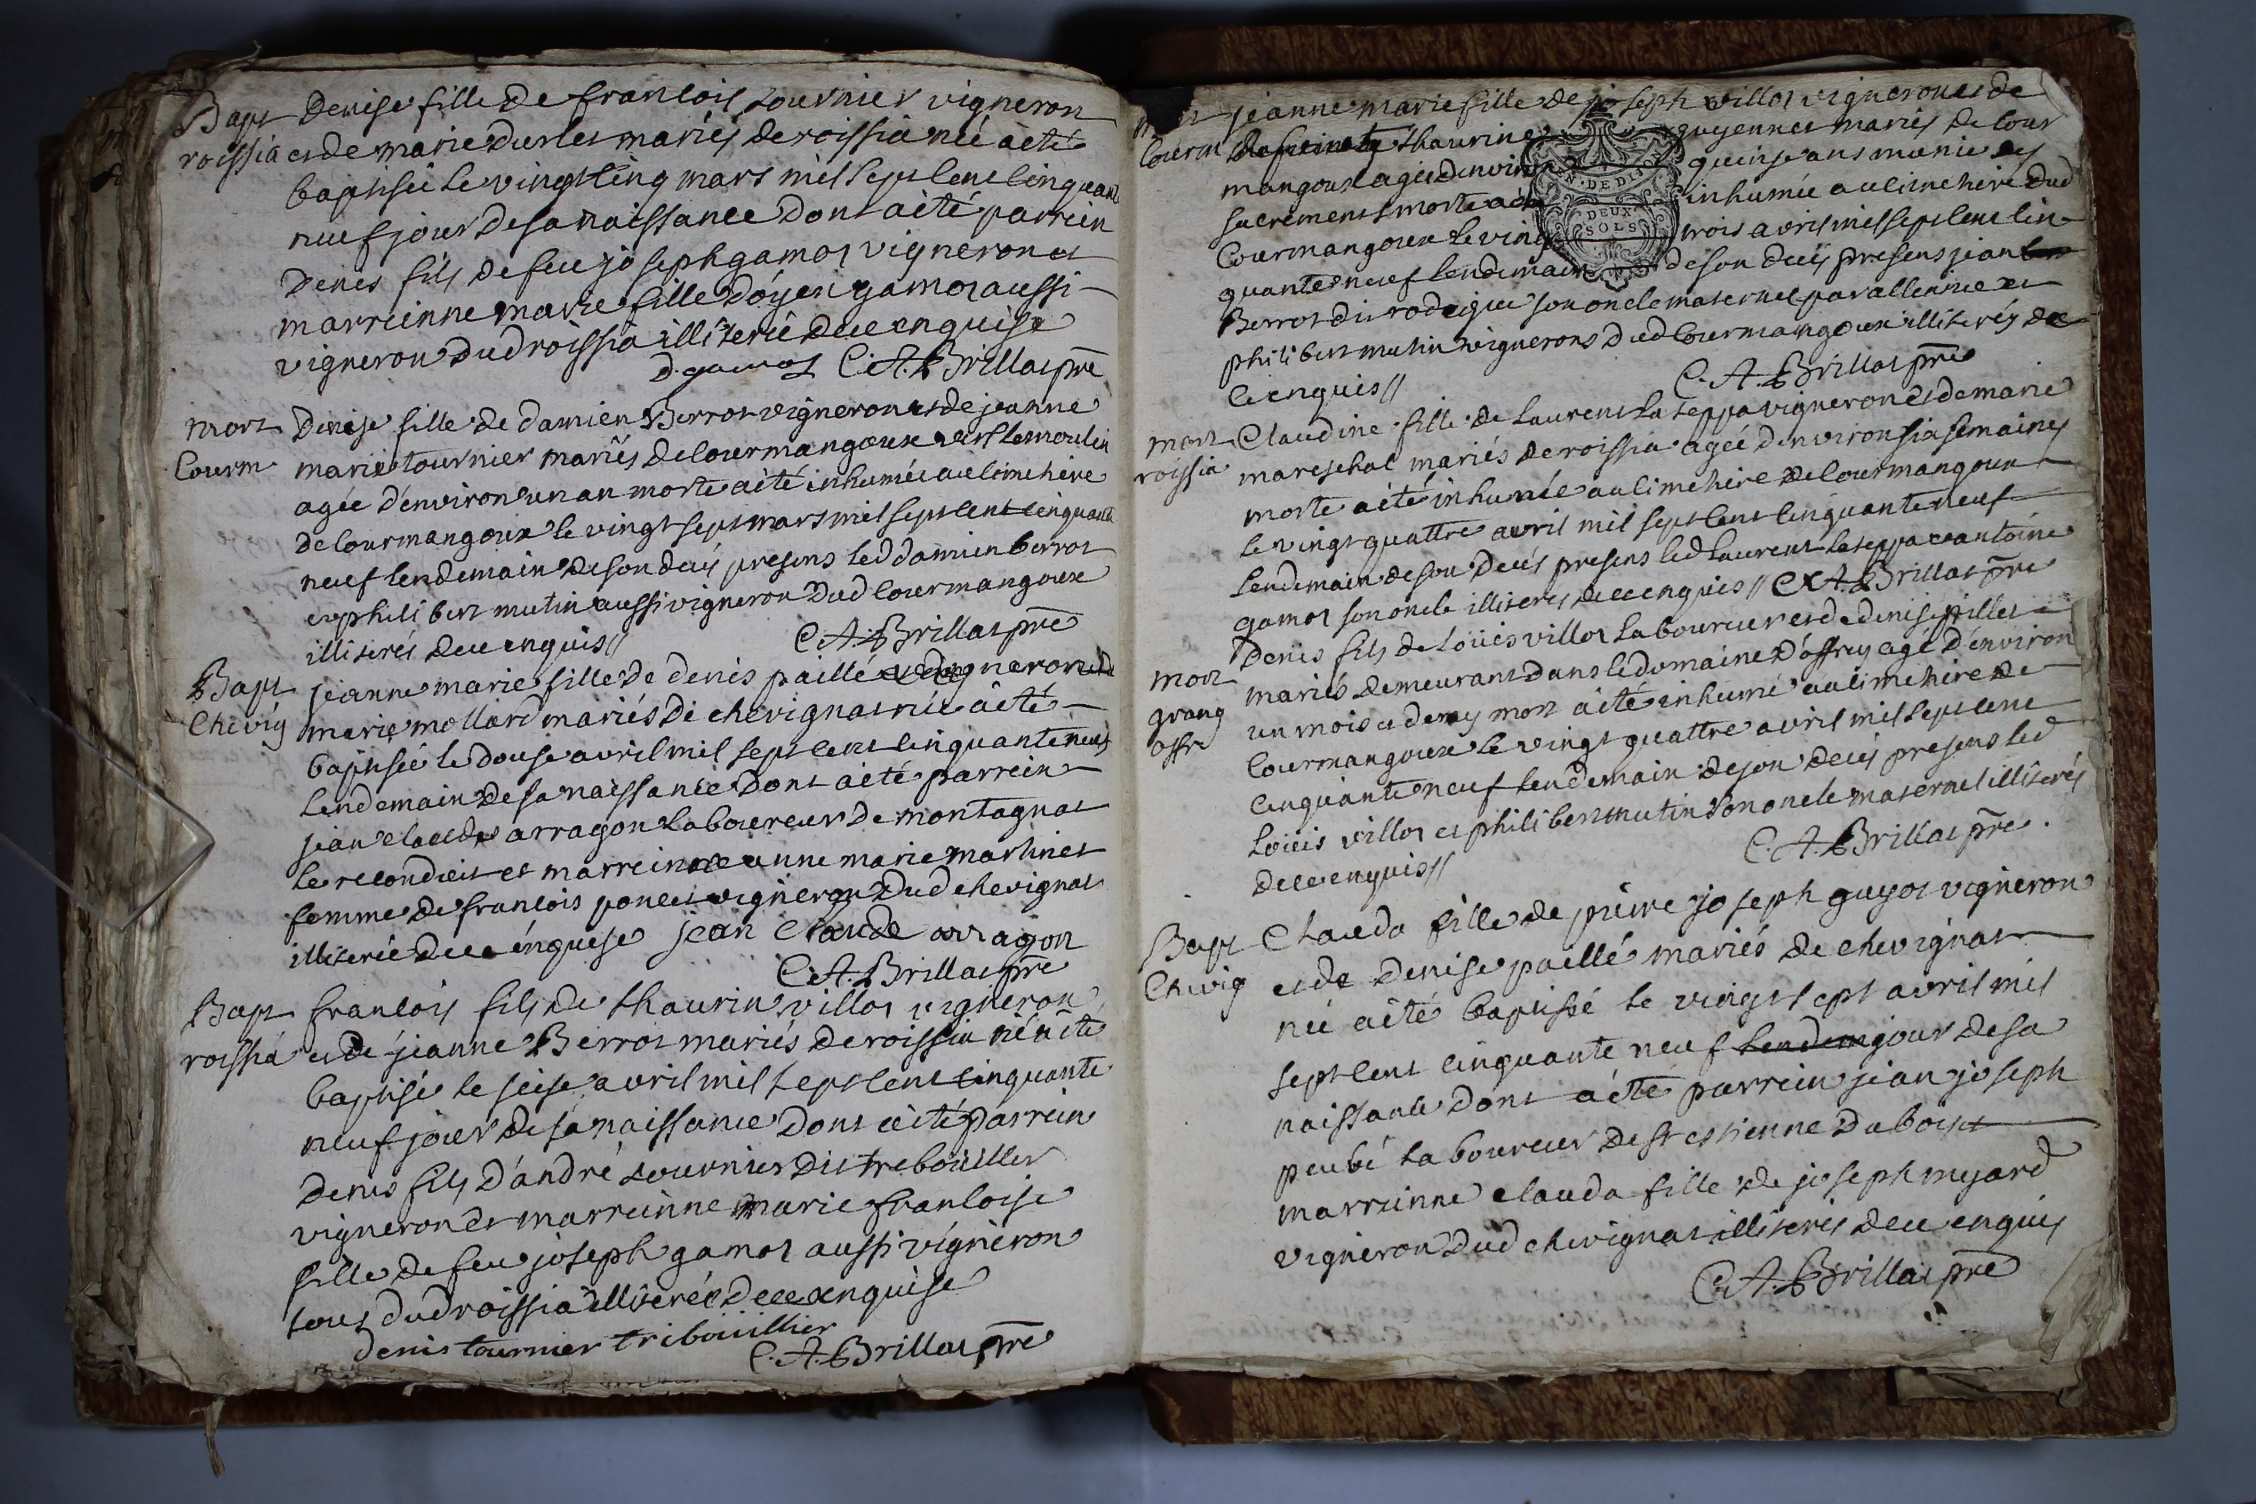 Bapt Denise fille de francois tournier vigneron
roissia et de marie duclet mariés de roissia néé a eté
baptiséé le vingt cinq mars mil sept cent cinquante
neuf jour de sa naissance dont a eté parrein
Denis fils de feu joseph gamot vigneron et
marreinne marie fille d'oyen gamot aussi
vigneron dud roissia illiteréé de ce enquise
D. gamot C. A. Brillat pre
mort Denise fille de damien Berrot vigneron et de jeanne
Courm marie tournier mariés de Courmangoux vers le moulin
agéé d'environ un an morte a eté inhumée au cimetiere
de Courmangoux le vingt sept mars mil sept cent cinquante
neuf lendemain de son decés presens led damien berrot
et philibert mutin aussi vigneron dud Courmangoux
illiterés de ce enquis //
C. A. Brillat pre
Bapt jeanne marie fille de denis paillé vigneron et de
Chevig marie mollard mariés de chevignat néé a eté
baptiséé le douse avril mil sept cent cinquante neuf
lendemain de sa naissance dont a eté parrein
jean claude arragon laboureur de montagnat
le reconduit et marreinne anne marie martinet
femme de francois poncet vigneron dud chevignat
illiteréé de ce enquise jean Claude arragon
C. A. Brillat pre
Bapt francois fils de thaurin villot vigneron
roissia et de jeanne Berrot mariés de roissia né a eté
baptisé le seise avril mil sept cent cinquante
neuf jour de sa naissance dont a eté parrein
Denis fils d'andré tournier dit trebouillier
vigneron et marreinne marie francoise
fille de feu joseph gamot aussi vigneron
tous dud roissia illiteréé de ce enquise
denis tournier tribouillier
C. A. Brillat pre
jeanne marie fille de joseph villot vigneron et de
Courm thaurine guyennet mariés de Cour
mangoux agéé d'environ quinse ans munie des
sacremens morte a eté inhumée au cimetiere dud
Courmangoux le vingt trois avril mil sept cent cin
quante neuf lendemain de son decés presens jean
Berrot dit rodigue son oncle maternel par allience et
philibert mutin vignerons dud Courmangoux illiterés de
ce enquis //
C. A. Brillat pre
mort Claudine fille de laurent la teppa vigneron et de marie
roissia mareschal mariés de roissia agéé d'environ six semaines
morte a eté inhuméé au cimetiere de Courmangoux
le vingt quattre avril mil sept cent cinquante neuf
lendemain de son decés presens led laurent lateppa et antoine
gamot son oncle illiterés de ce enquis // C. A. Brillat pre
mort Denis fils de Loüis villot laboureur et de denise pillet
grang mariés demeurant dans le domaine d'offrey agé d'environ
offr un mois et demy mort a eté inhumé au cimetiere de
Courmangoux le vingt quattre avril mil sept cent
cinquante neuf lendemain de son decés presens led
Loüis villot et philibert mutin son oncle maternel illiterés
de ce enquis //
C. A. Brillat pre.
Bapt Clauda fille de pierre joseph guyot vigneron
Chevig et de Denise paillé mariés de chevignat
néé a eté baptisé le vingt sept avril mil
sept cent cinquante neuf lendem jour de sa
naissance dont a eté parrein jean joseph
peubé laboureur de st estienne du bois et
marreinne clauda fille de joseph myard
vigneron dud chevignat illiterés de ce enquis
C. A. Brillat pre
DEUX
SOLS